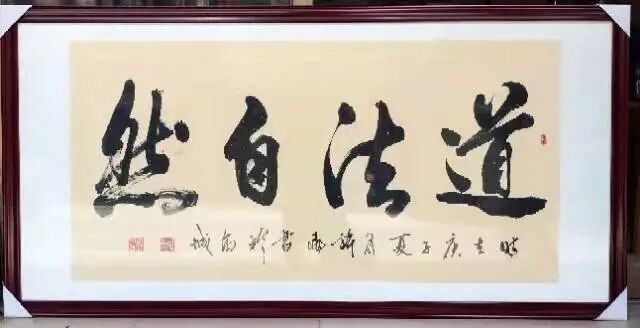 道法自然
時在庚子夏月書於城